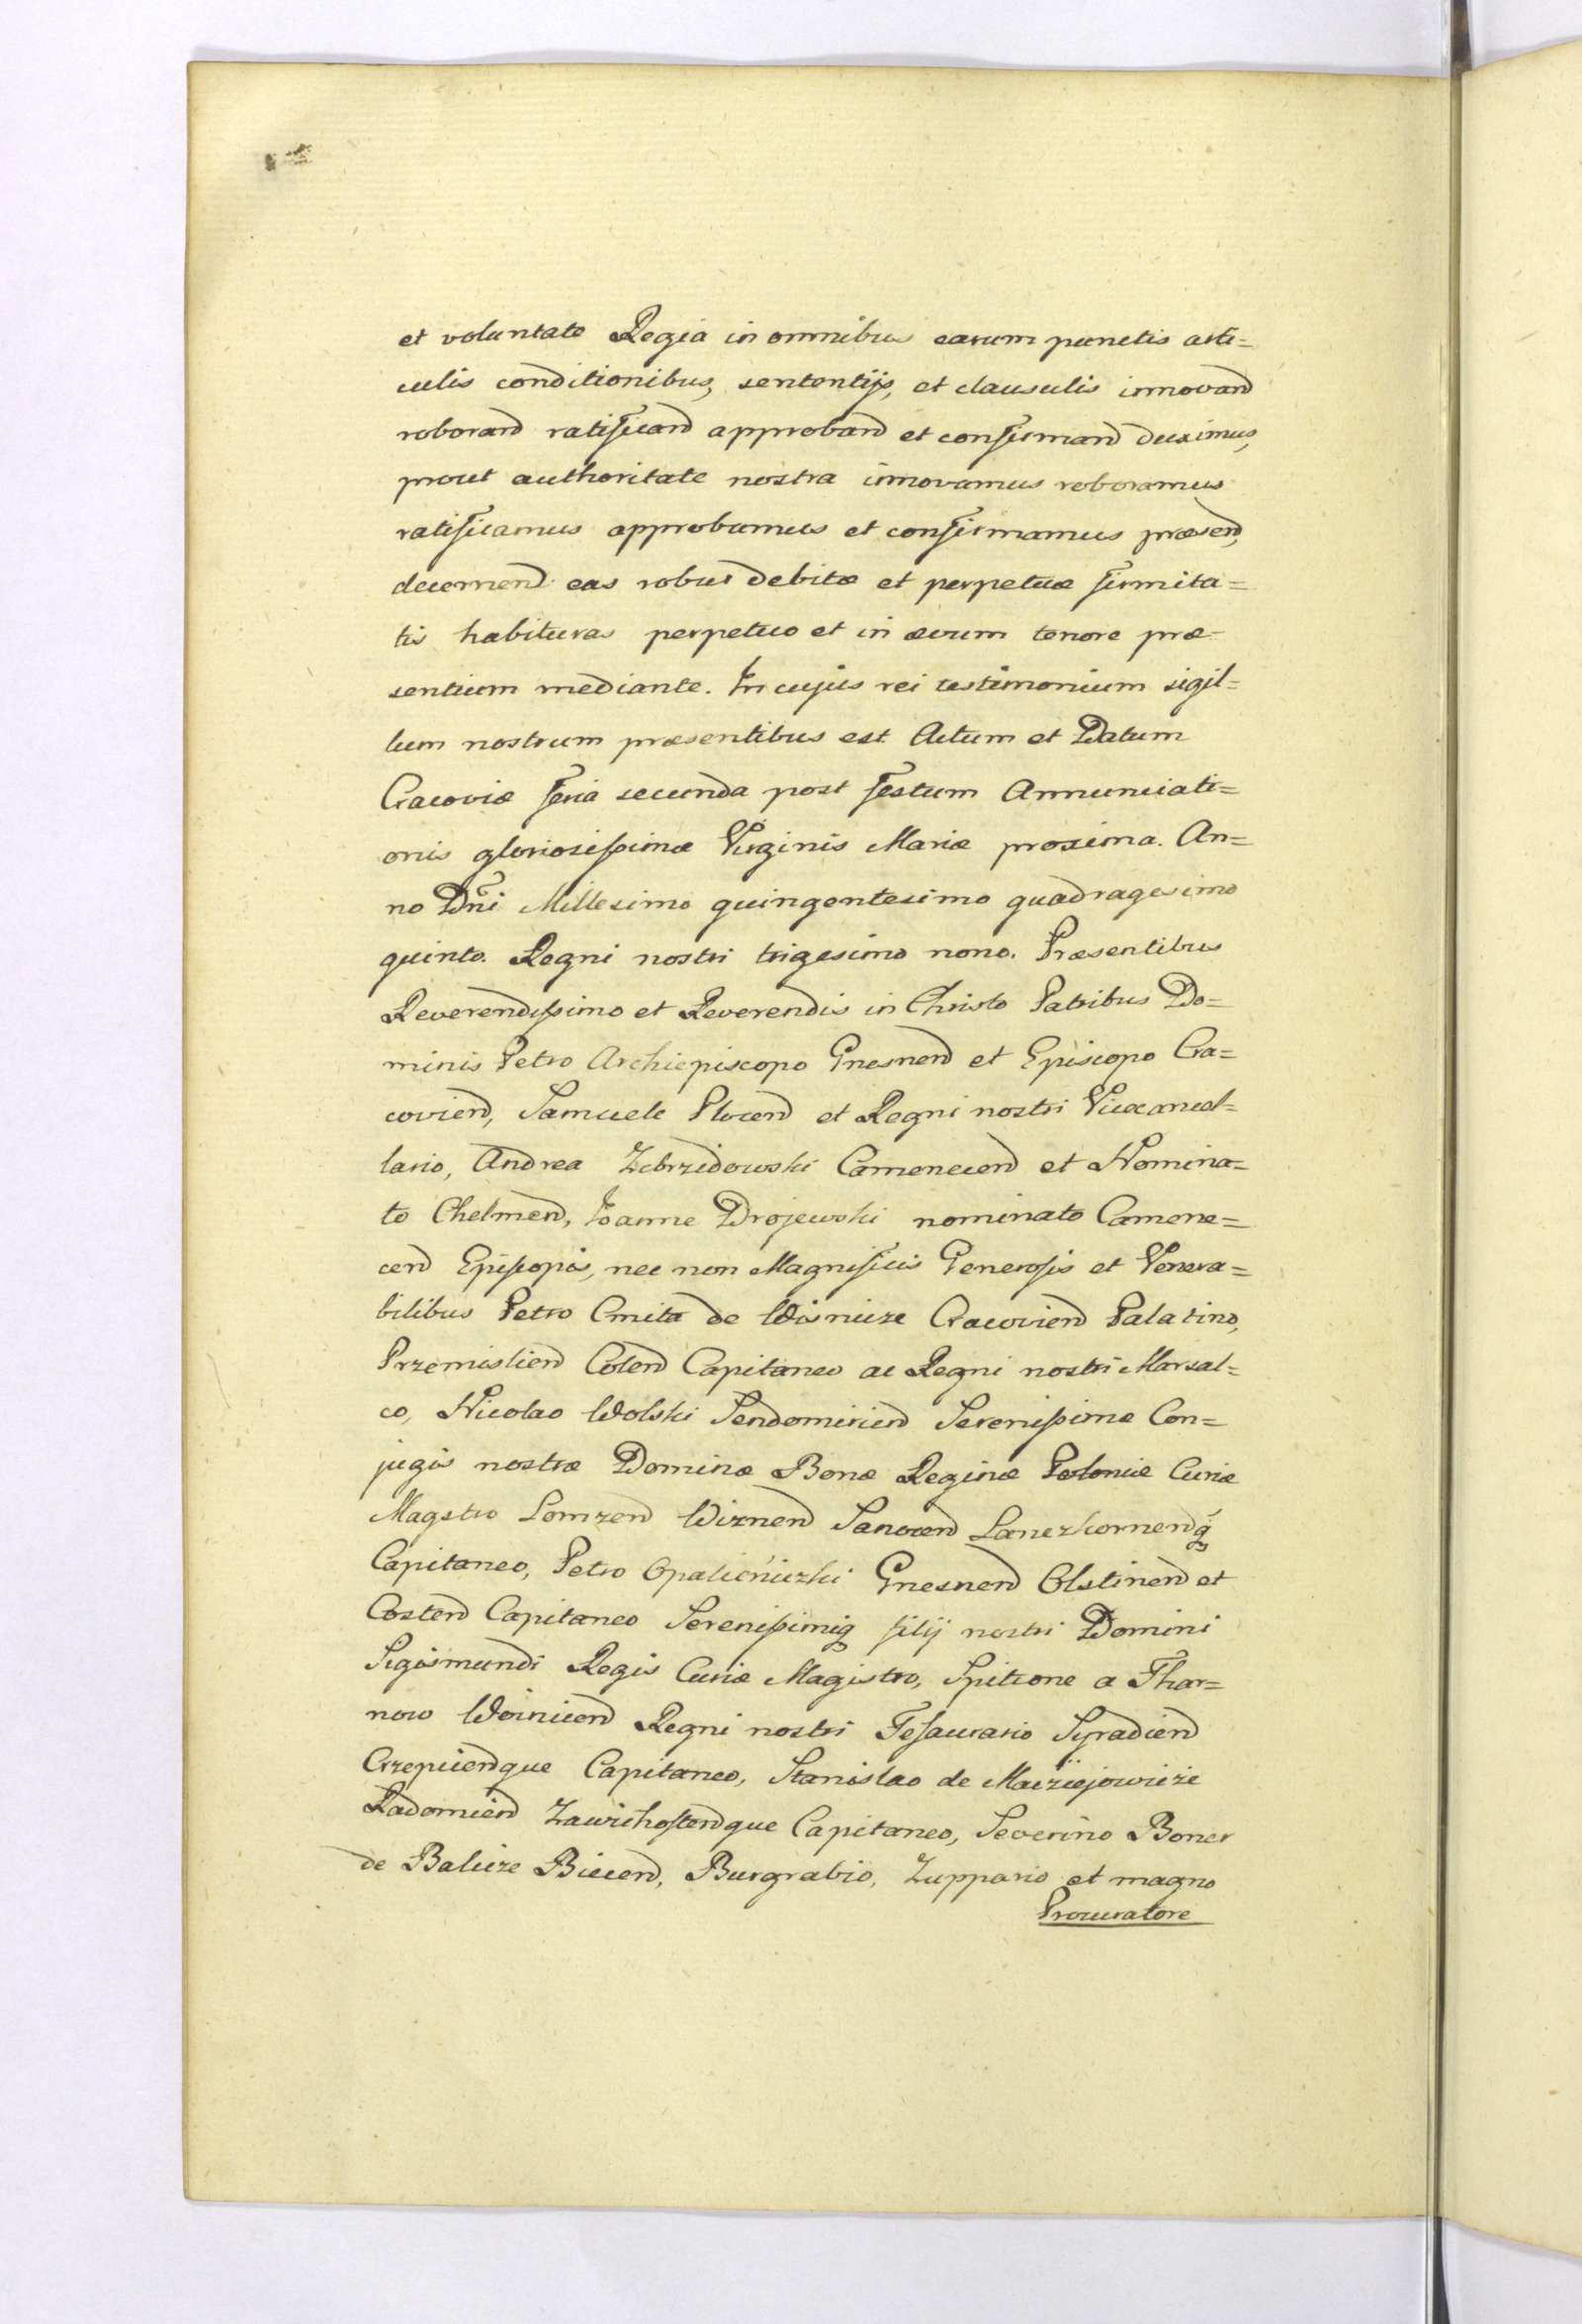 et voluntate Regia in omnibus earum punctis arti=
culis conditionibus, sententijs, et clausulis innovand
roborand ratificand approband et confirmand duximus,
prout authoritate nostra innovamus roboramus
ratificamus approbamus et confirmamus præsend,
decernend eas robur debitæ et perpetuæ firmita=
tis habituras perpetuo et in ævum tenore præ=
sentium mediante. In cujus rei testimonium sigil=
lum nostrum præsentibus est Actum et Datum
Cracoviæ feria secunda post festum Annunciati=
onis gloriosissimæ Virginis Mariæ proxima. An=
no Dni Millesimo quingentesimo quadragesimo
quinto. Regni nostri trigesimo nono. Præsentibus
Reverendissimo et Reverendis in Christo Patribus Do=
minis Petro Archiepiscopo Gnesnend et Episcopo Cra=
coviend, Samuele Plocend et Regni nostri Vicecancel=
lario, Andrea Zebrzidowski Camenecend et Nomina=
to Chelmend, Joanne Drojewski nominato Camene=
cend Episcopis, nec non Magnificis Generosis et Venera=
bilibus Petro Cmita de Wisnicze Cracoviend Palatino,
Przemisliend Colend Capitaneo ac Regni nostri Marsal=
co, Nicolao Wolski Sendomiriend Serenissimæ Con=
jugis nostræ Dominæ Bonæ Reginæ Poloniæ Curiæ
Magstro Lomzend Wiznend Sanocend Lanczkornendq
Capitaneo, Petro Opalieniczki Gnesnend Olstinend et
Costend Capitaneo Serenissimiq filij nostri Domini
Sigismundi Regis Curiæ Magistro, Spitione a Thar=
now Woinicend Regni nostri Tesaurario Syradiend
Crzepicendque Capitaneo, Stanislao de Macziejowicze
Radomiend Zawichostendque Capitaneo, Severino Boner
de Balicze Biecend, Burgrabio, Zuppario et magno
Procuratore